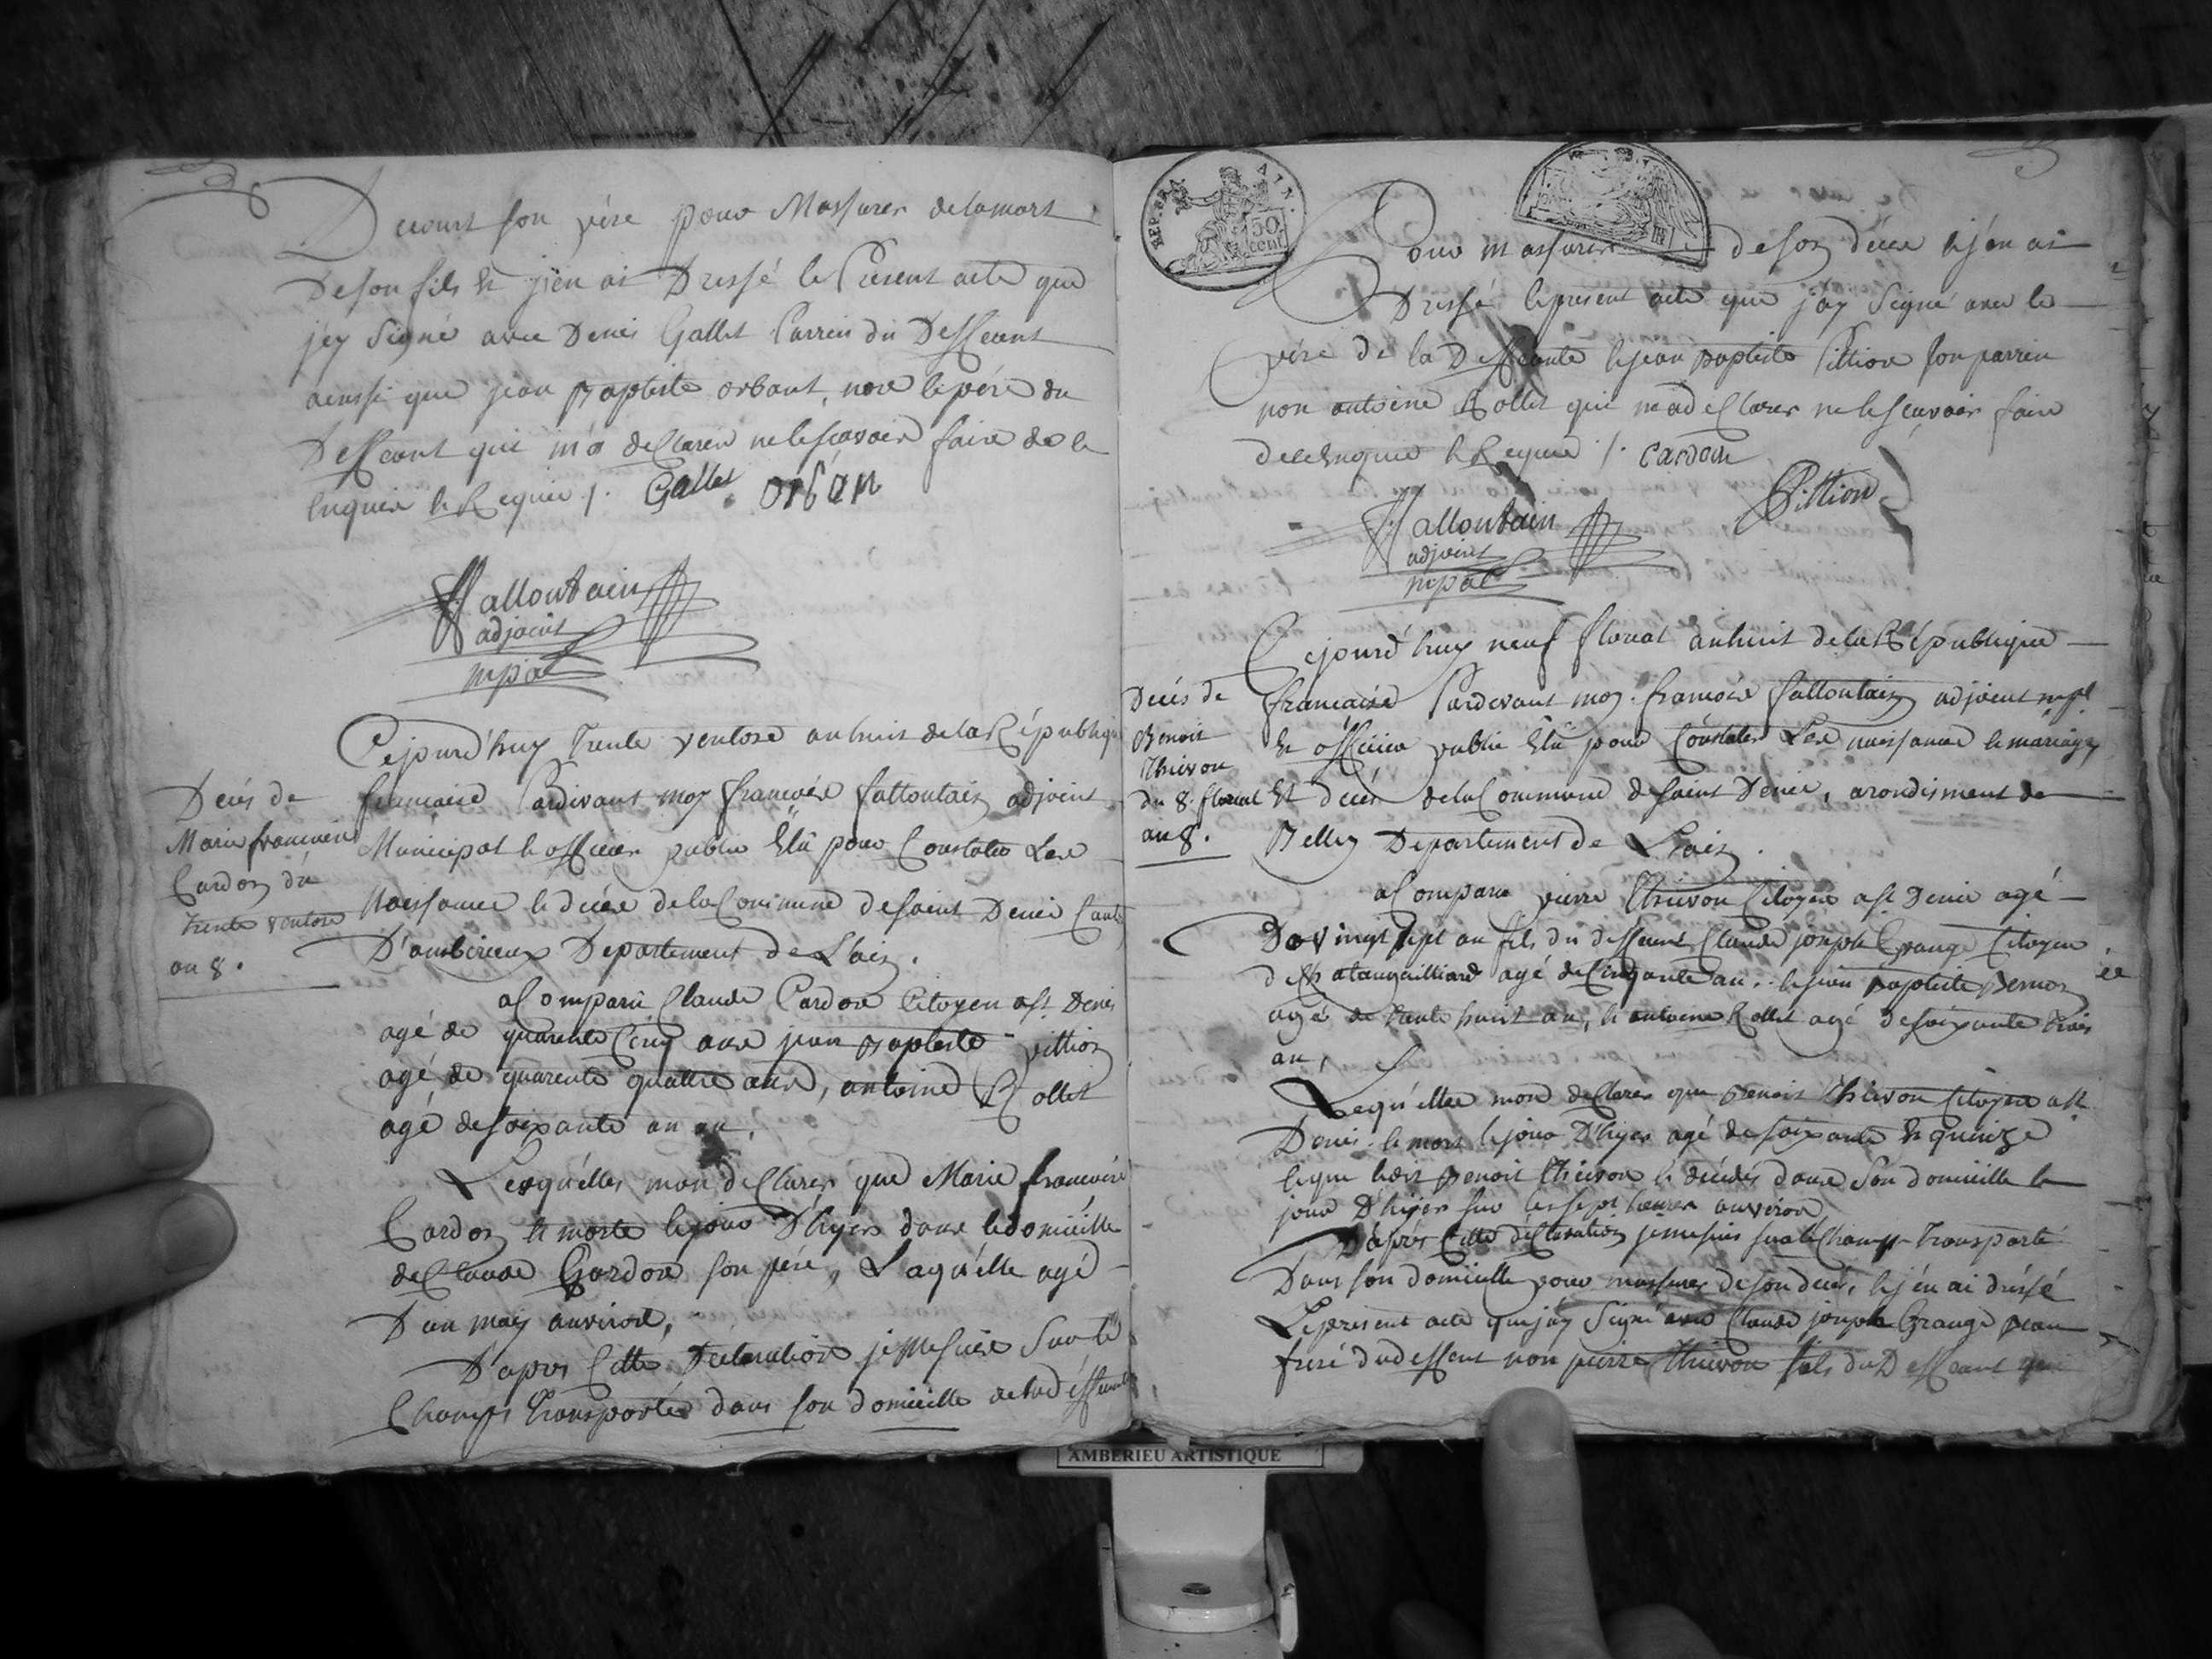 Decourt son père pour Massurer delamort
De son fils et j'en ai Dressé le Present acte que
j'ey Signé avec Denis Gallet Parrein du Deffeunt
ainsi que jean Baptiste orbant, non le père du
Deffeunt qui m'a declarer ne lesçavoir faire de le
enquier le Requie /. Gallet orban
fallontain
adjoint
mpal
Cejourd'huy Trente ventose an huit de la Républiqu
francaise Pardevant moy françois fallontain adjoint
Municipal et officier public Elû pour Constater Les
Naissance le décés de la Commune de saint Denis Canto
D'amberieux Departement de L'ain.
Decés de
Marie françoise
Cardon du
trente ventose
an 8.
a Comparu Claude Cardon Citoyen a st Denis
agé de quarente Cinq ans jean Baptiste pittion
agé de quarente quattre ans, antoine Rollet
agé de soixante un an.
Lesquelles mon declarer que Marie françoise
Cardon et morte le jour D'hyer dans le domicille
de Claude Cardon son père, Laquélle agé
D'un mois anviron,
D'apres Cette Déclaration je me suis Sur le
Champs transporté dans son domicille de la déffunte
REP. FRA. 50 cent AIN.
Pour m assurer de son décé et j'en ai
Dressé le present acte que j'ay Signé avec le
père de la Deffeunte et jean Baptiste Pittion son parrein
non antoine Rollet qui ma declarer ne le sçavoir faire
de ce enquie le Requie /. cardon
Pittion
fallontain
adjoint
mpal
Cejourd'huy neuf floreal an huit de la République
francaise Pardevant moy françois fallontain adjoint mpl
Et officier public Elû pour Constater Les naissance le mariage
Et décés de la Commune de saint Denis, arondisment de
Belley Departement de L'ain.
Decés de
Benoit
Thievon
du 8 floreal
an 8.
a Comparu pierre Thievon Citoyen a st Denis agé
De vingt sept an fils du deffeunt Claude joseph Grange Citoyen
de Chatangailliard agé de Cinquante an, et jean Baptiste Bernon
agé de trente huit an, et antoine Rollet agé de soixante trois
an,
Lequ'elles mon declarer que Benoit Thievon Citoyen a st
Denis et mort le jour D'hyer agé de soixante et quinze
et que ledit Benoit Thievon et décédés dans Son domicille le
jour D'hyer sur les sept heures anviron
D'après Cette déclaration je me suis sur le Champ transporté
Dans son domicille pour massurer de son décé, et j'en ai dréssé
Le present acte que j'ay Signé avec Claude joseph Grange beau
frere du deffent non pierre Thievon fils du Deffeunt qui
AMBERIEU ARTISTIQUE